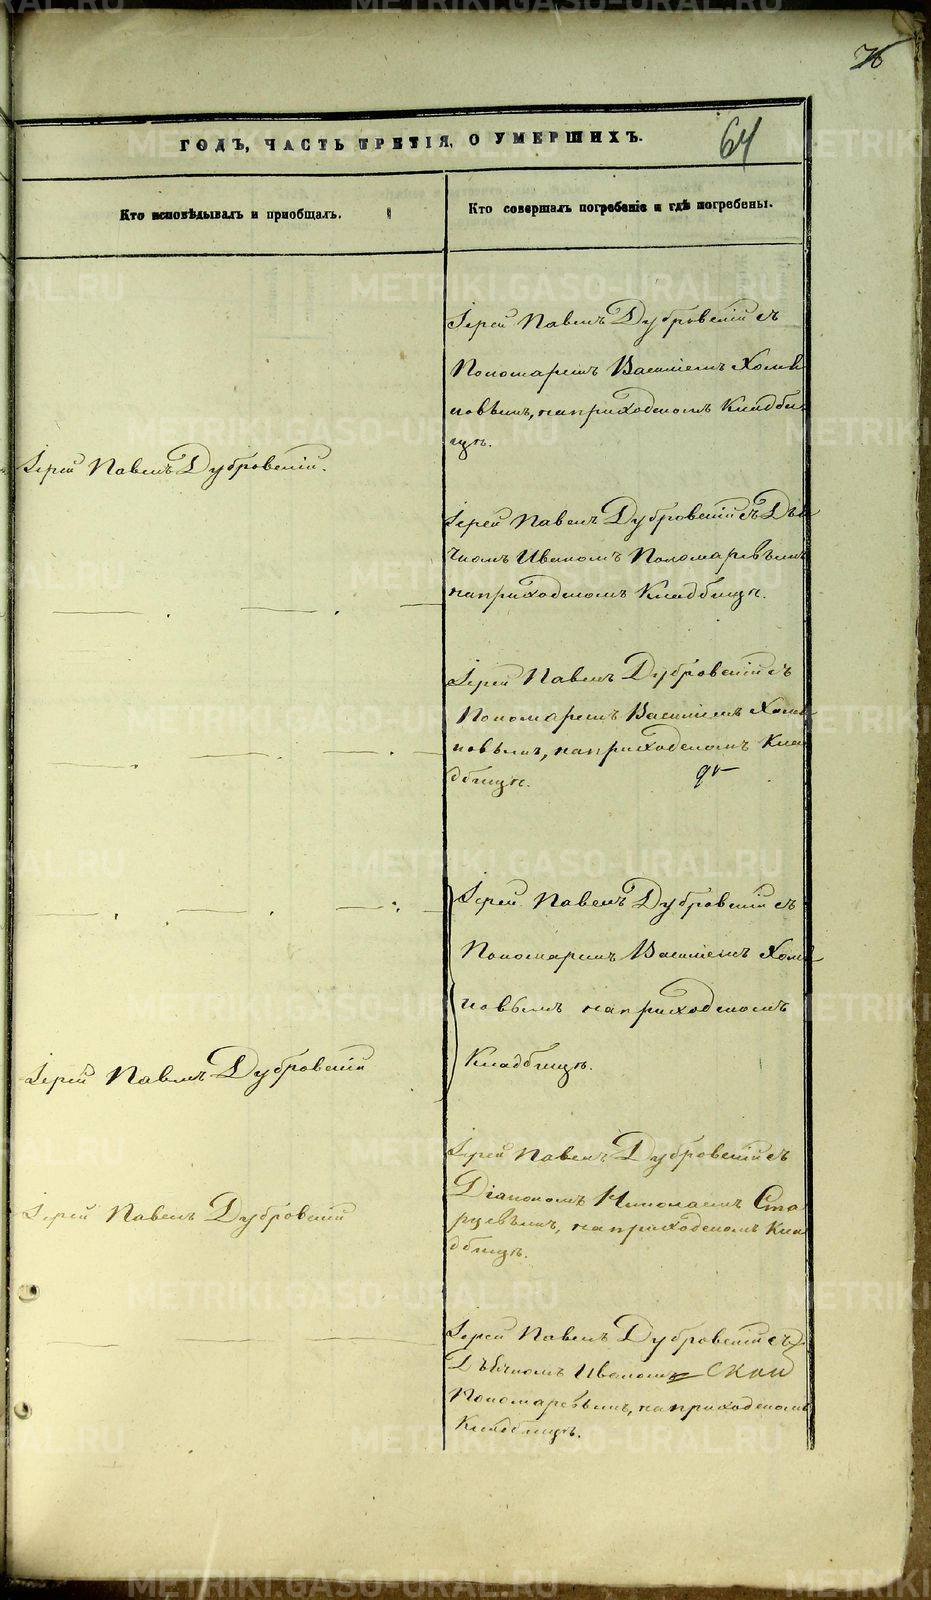 76
ГОДЪ, ЧАСТЬ ТРЕТІЯ, О УМЕРШИХЪ.
64
Кто исповѣдывалъ и пріобщалъ.
Кто совершалъ погребеніе и гдѣ погребены.
Іерей Павелъ Дубровскій съ
Пономаремъ Василіемъ Хомя
ковымъ, на приходскомъ Кладби
щѣ.
Іерей Павелъ Дубровскій.
Іерей Павелъ Дубровскій съ Дья
чкомъ Иваномъ Пономаревымъ
на приходскомъ Кладбищѣ.
Іерей Павелъ Дубровскій съ
Пономаремъ Василіемъ
новымъ, на приходскомъ Кла
дбищѣ.
Іерей Павелъ Дубровскій съ
Пономаремъ Василіемъ
новымъ на приходскомъ
Кладбищѣ.
Іерей Павелъ Дубровскій
Іерей Павелъ Дубровскій съ
Діакономъ Николаемъ Ста
рцевымъ, на приходскомъ Кла
дбищѣ.
Іерей Павелъ Дубровскій
Іерей Павелъ Дубровскій съ
Дьячкомъ Иваномъ
Пономаревымъ, на приходскомъ
Кладбищѣ.
METRIKI.GASO-URAL.RU